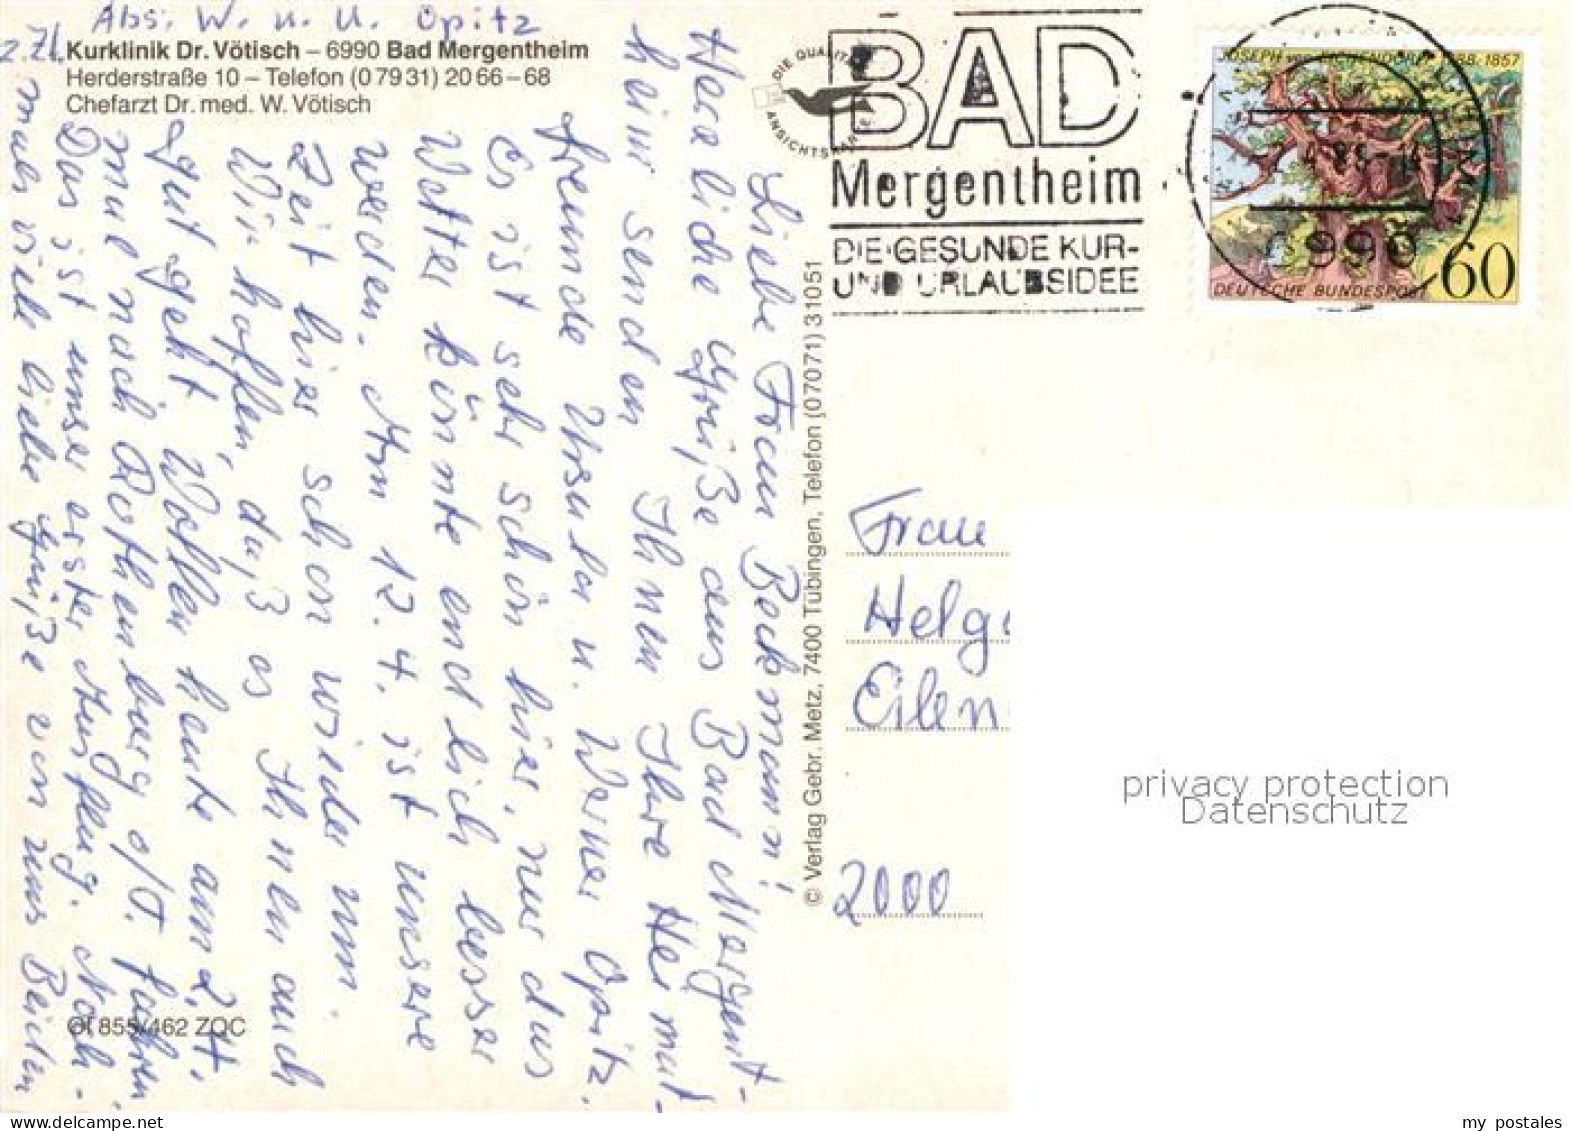 Abs: W. u. U. Opitz
z. Zt. Kurklinik Dr. Vötisch – 6990 Bad Mergentheim
Herderstraße 10 – Telefon (0 79 31) 20 66 – 68
Chefarzt Dr. med. W. Vötisch
Liebe Frau Bockmann!
Herzliche Grüße aus Bad Mergent-
heim senden Ihnen Ihre Heimat-
freunde Ursula u. Werner Opitz.
Es ist sehr schön hier, nur das
Wetter könnte endlich besser
werden. Am 12. 4. ist unsere
Zeit hier schon wieder um.
Wir hoffen, daß es Ihnen auch
gut geht. Wollen heute am 2.4.
mal nach Rothenburg o/T. fahren.
Das ist unser erster Ausflug. Noch-
mals viele liebe Grüße von uns Beiden
Ol 855/462 ZQC
© Verlag Gebr. Metz, 7400 Tübingen, Telefon (07071) 31051
DIE QUALITÄTS
ANSICHTSKARTE
BAD
Mergentheim
DIE GESUNDE KUR-
UND URLAUBSIDEE
JOSEPH von EICHENDORFF 1788-1857
6990
DEUTSCHE BUNDESPOST
60
Frau
Helg
Eilen
2000
privacy protection
Datenschutz
delcampe.net
my_postales